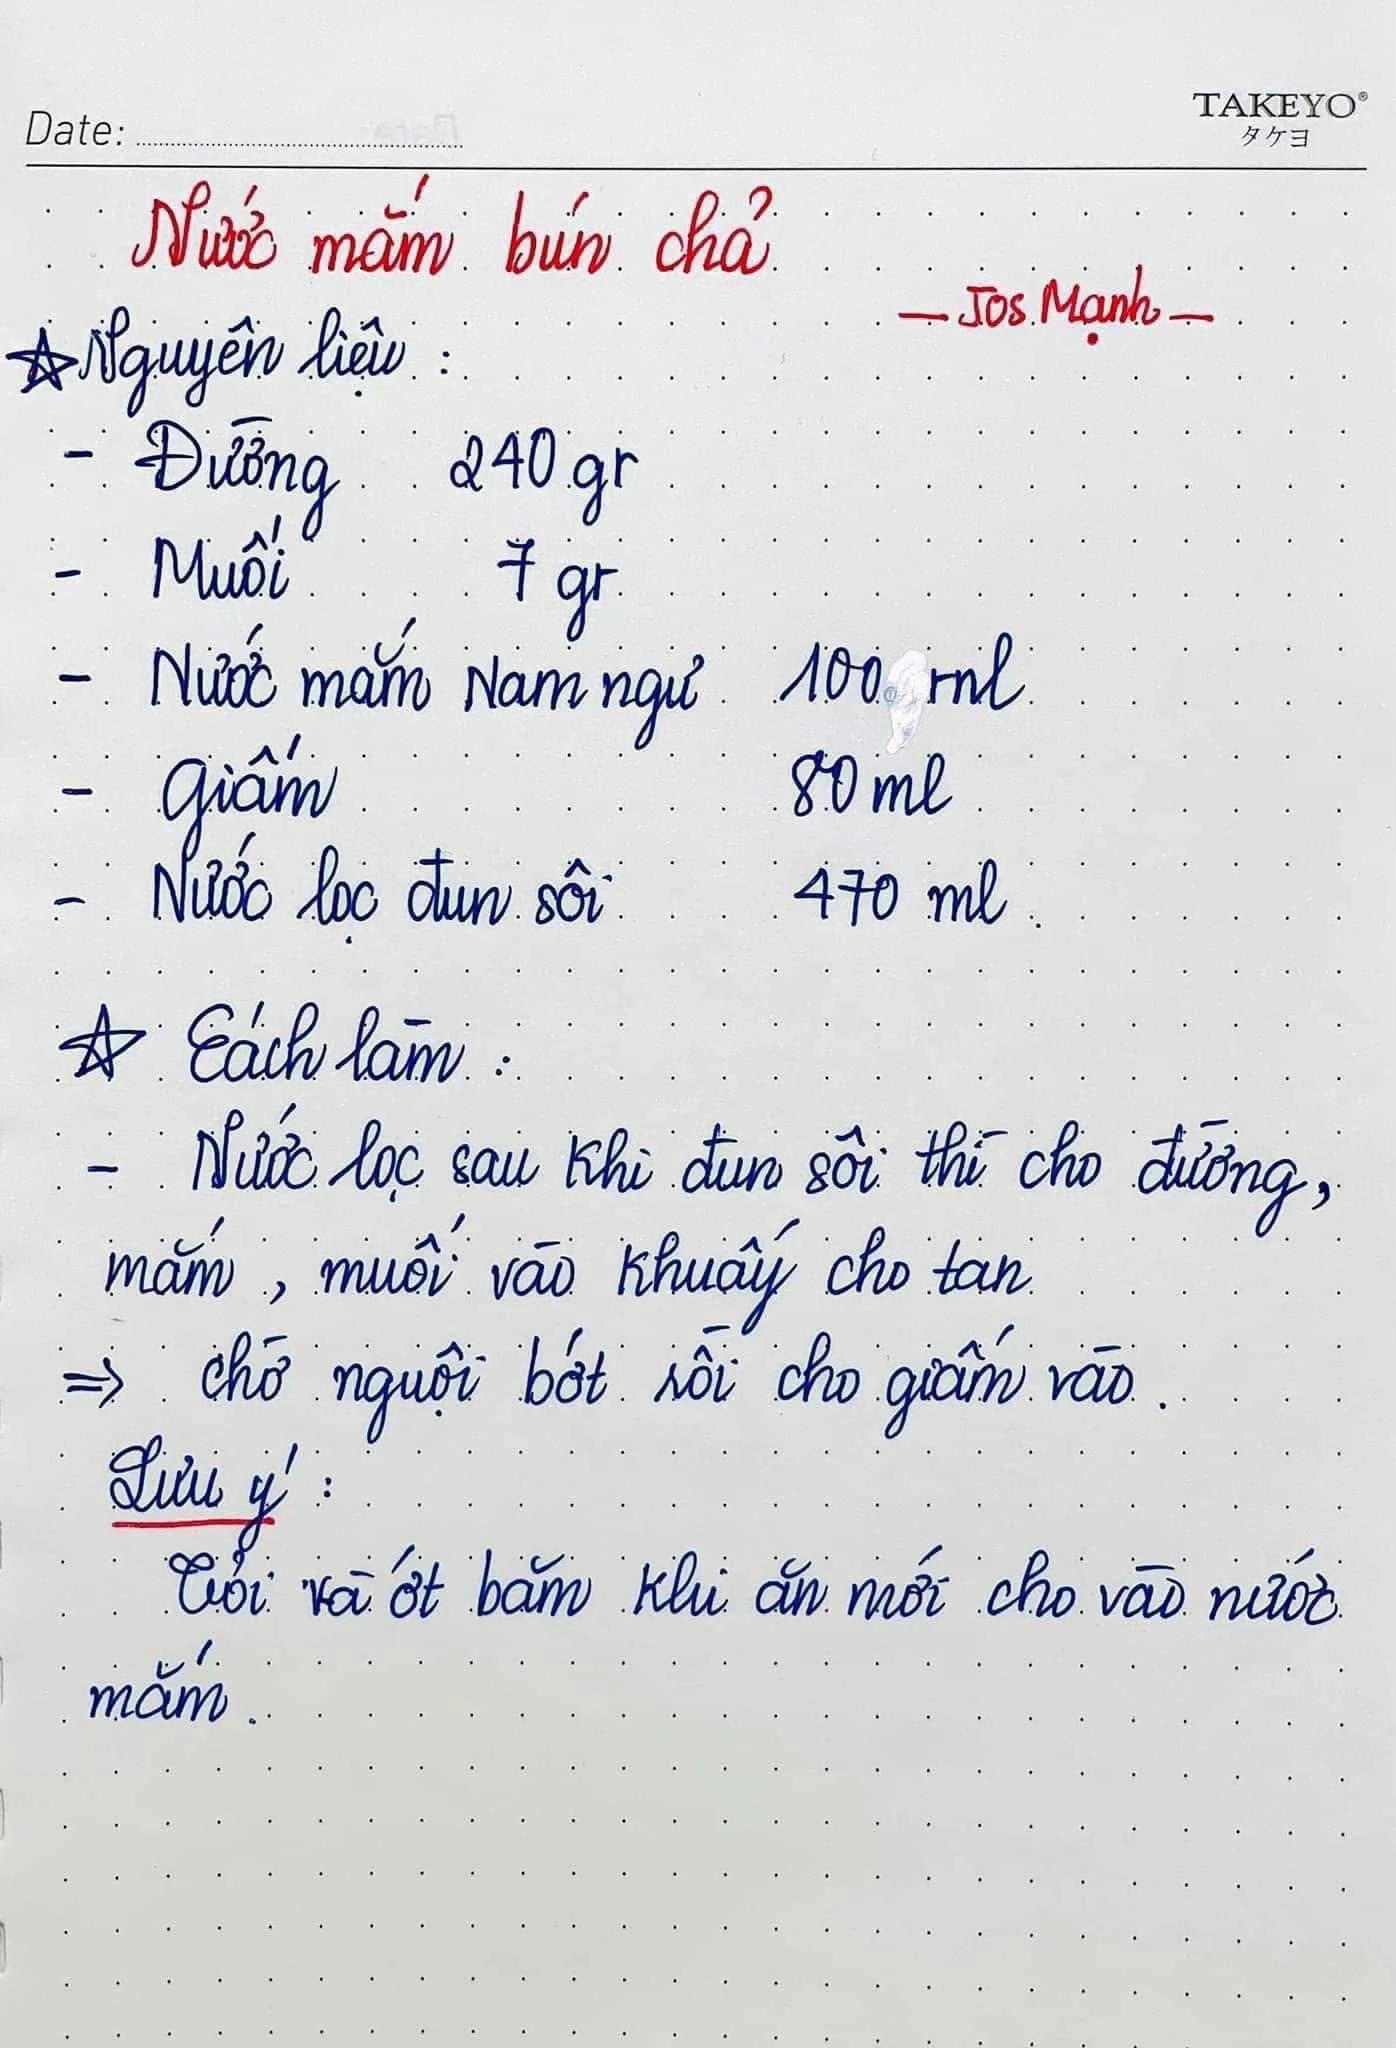 TAKEYO®
タケヨ
Date:
Nước mắm bún chả
— Jos Mạnh —
Nguyên liệu :
- Đường 240 gr
- Muối 7 gr
- Nước mắm Nam ngư 100 ml
- Giấm 80 ml
- Nước lọc đun sôi 470 ml.
Cách làm :
- Nước lọc sau khi đun sôi thì cho đường,
mắm, muối vào khuấy cho tan
=> chờ nguội bớt rồi cho giấm vào.
Lưu ý :
Tỏi và ớt băm khi ăn mới cho vào nước
mắm.